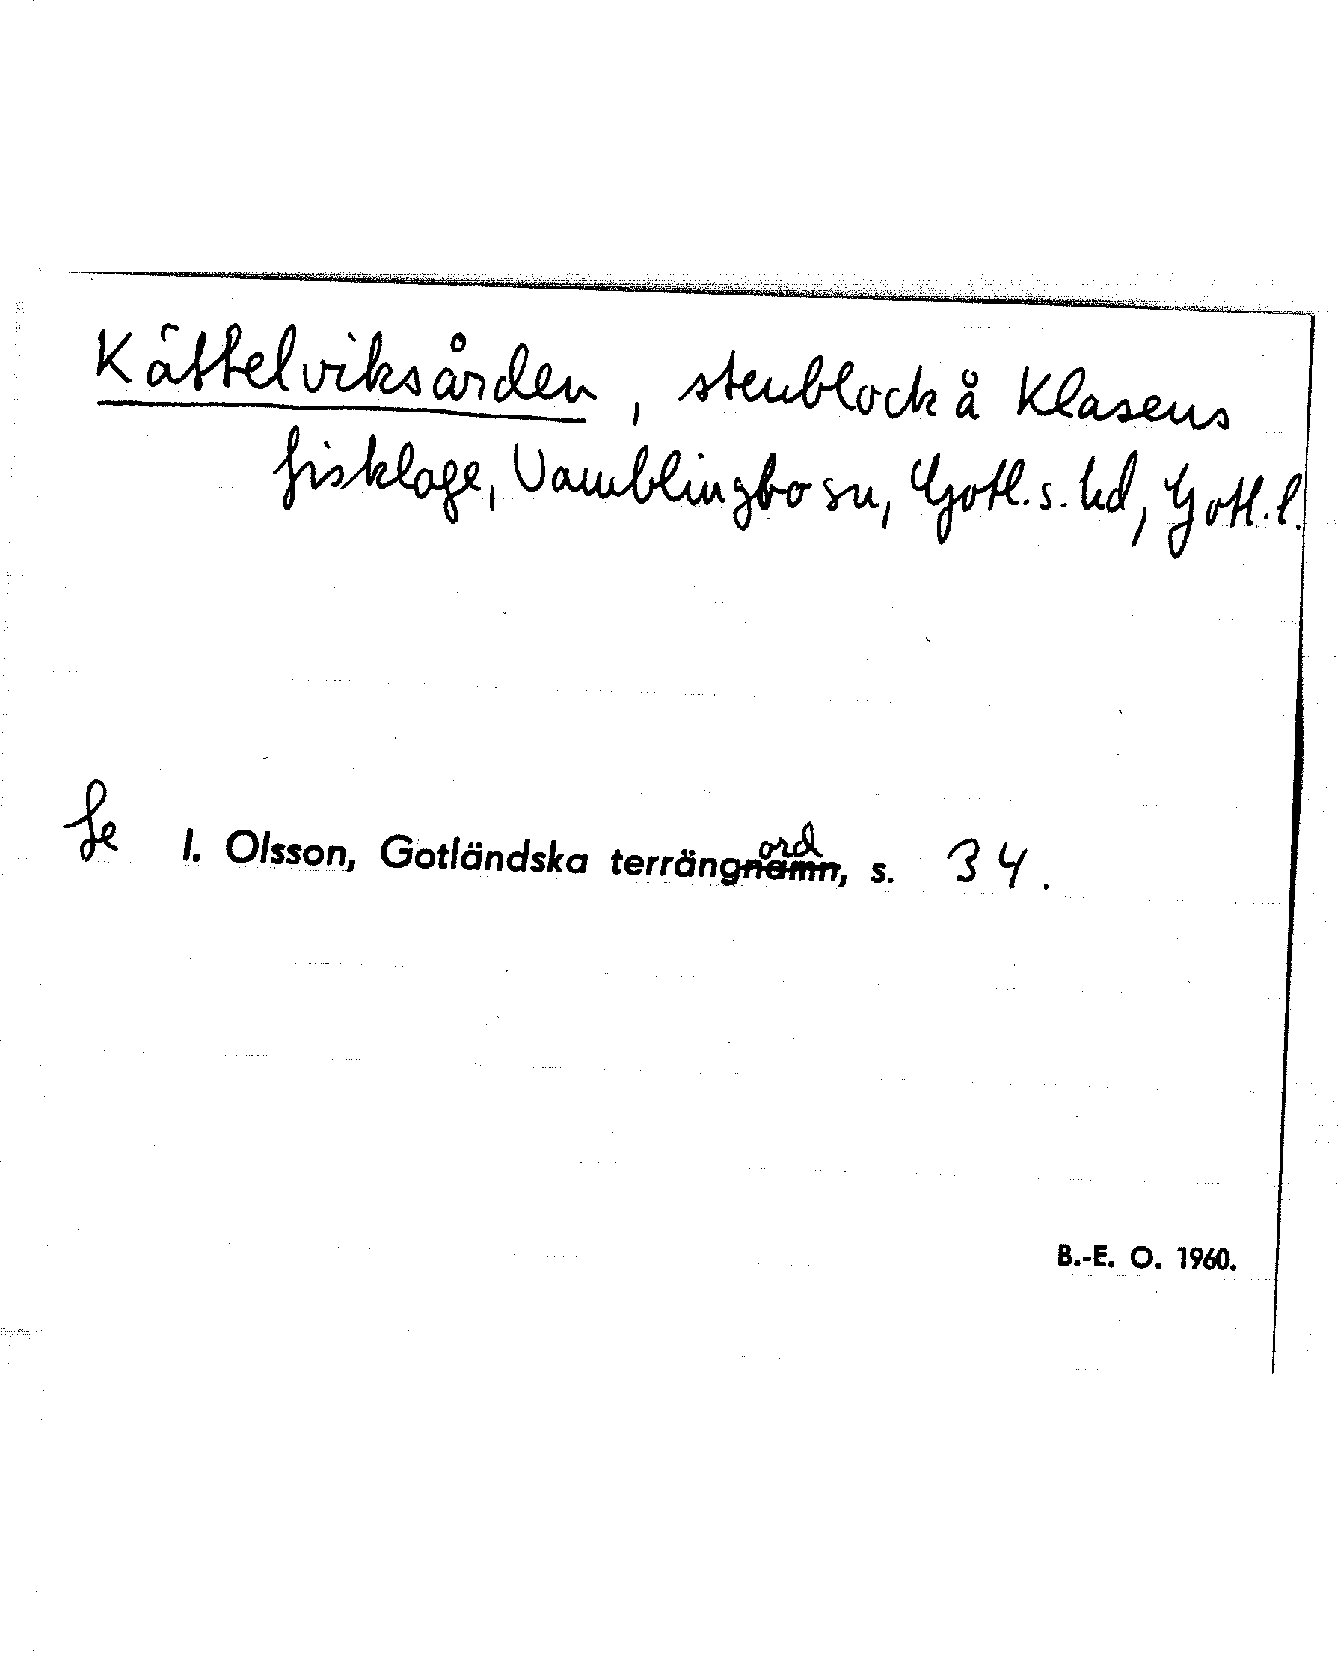 Kättelviksården, stenblock å Klasens
fiskläge, Vamblingbo sn, Gotl. s. hd, Gotl. l.
Se I. Olsson, Gotländska terrängord, s. 34.
B.-E. O. 1960.